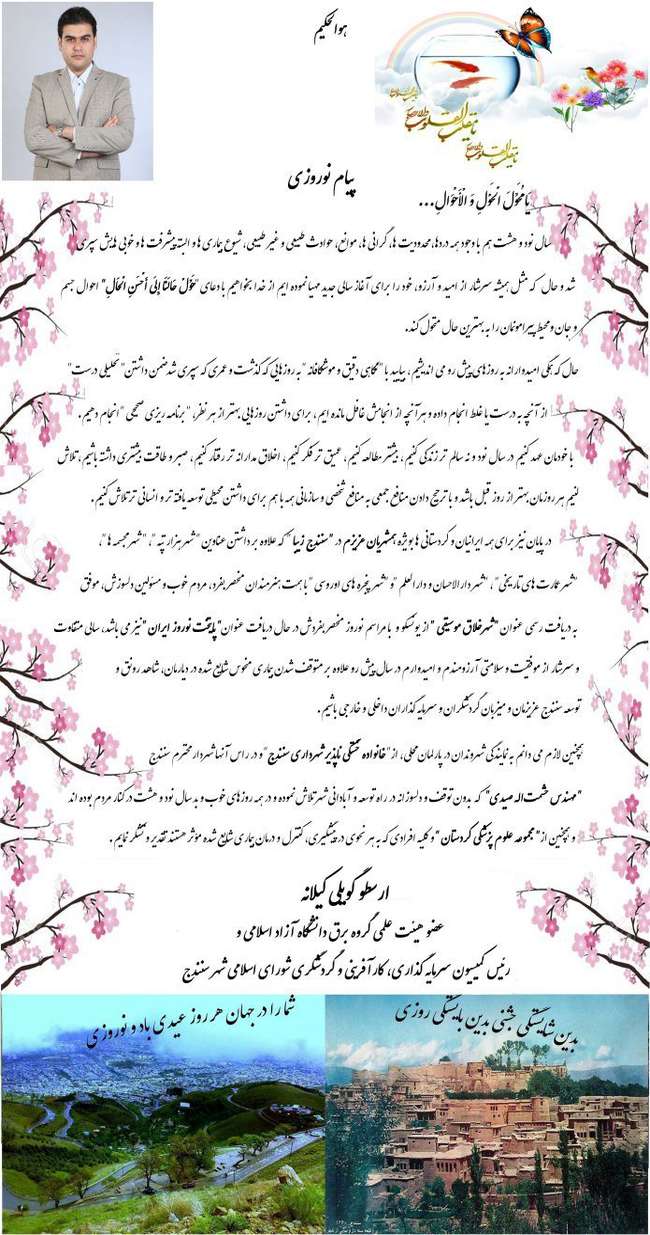 هوالحکیم
یا مقلب القلوب والابصار
یا مقلب القلوب والابصار
پیام نوروزی
یا مُحَوِّلَ الْحَوْلِ وَ الْأَحْوَالِ...
سال نود و هشت هم با وجود همه دردها، محدودیت ها، گرانی ها، موانع، حوادث طبیعی و غیر طبیعی، شیوع بیماری ها و البته پیشرفت ها و خوبی هایش سپری
شد و حال که مثل همیشه سرشار از امید و آرزو، خود را برای آغاز سالی جدید مهیا نموده ایم از خدا بخواهیم با دعای "حَوِّلْ حَالَنَا إِلَی أَحْسَنِ الْحَالِ" احوال جسم
و جان و محیط پیرامونمان را به بهترین حال متحول کند.
حال که همگی امیدوارانه به روزهای پیش رو می اندیشیم، بیایید با "نگاهی دقیق و موشکافانه" به روزهایی که گذشت و عمری که سپری شد ضمن داشتن "تحلیلی درست"
از آنچه به درست یا غلط انجام داده و هر آنچه از انجامش غافل مانده ایم، برای داشتن روزهایی بهتر از هر نظر، "برنامه ریزی صحیحی" انجام دهیم.
با خودمان عهد کنیم در سال نود و نه سالم تر زندگی کنیم، بیشتر مطالعه کنیم، عمیق تر فکر کنیم، اخلاق مدارانه تر رفتار کنیم، صبر و طاقت بیشتری داشته باشیم، تلاش
کنیم هر روزمان بهتر از روز قبل باشد و با ترجیح دادن منافع جمعی به منافع شخصی و سازمانی همه با هم برای داشتن محیطی توسعه یافته تر و انسانی تر تلاش کنیم.
در پایان نیز برای همه ایرانیان و کردستانی ها بویژه همشهریان عزیزم در "سنندج زیبا" که علاوه بر داشتن عناوین "شهر هزار تپه"، "شهر مجسمه ها"،
"شهر عمارت های تاریخی"، "شهر دارالاحسان و دارالعلم" و "شهر پنجره های اوروسی" با همت هنرمندان منحصربفرد، مردم خوب و مسئولین دلسوزش، موفق
به دریافت رسمی عنوان "شهر خلاق موسیقی" از یونسکو و با مراسم نوروز منحصربفردش در حال دریافت عنوان "پایتخت نوروز ایران" نیز می باشد، سالی متفاوت
و سرشار از موفقیت و سلامتی آرزومندم و امیدوارم در سال پیش رو علاوه بر متوقف شدن بیماری منحوس شایع شده در دیارمان، شاهد رونق و
توسعه سنندج عزیزمان و میزبان گردشگران و سرمایه گذاران داخلی و خارجی باشیم.
همچنین لازم می دانم به نمایندگی شهروندان در پارلمان محلی، از "خانواده خستگی ناپذیر شهرداری سنندج" و در راس آنها شهردار محترم سنندج
"مهندس حشمت اله صیدی" که بدون توقف و دلسوزانه در راه توسعه و آبادانی شهر تلاش نموده و در همه روزهای خوب و بد سال نود و هشت در کنار مردم بوده اند
و همچنین از "مجموعه علوم پزشکی کردستان" و کلیه افرادی که به هر نحوی در پیشگیری، کنترل و درمان بیماری شایع شده مؤثر هستند تقدیر و تشکر نمایم.
ارسطو گویلی کیلانه
عضو هیئت علمی گروه برق دانشگاه آزاد اسلامی و
رئیس کمیسیون سرمایه گذاری، کارآفرینی و گردشگری شورای اسلامی شهر سنندج
بدین شایستگی جشنی بدین بایستگی روزی
شما را در جهان هر روز عیدی باد و نوروزی